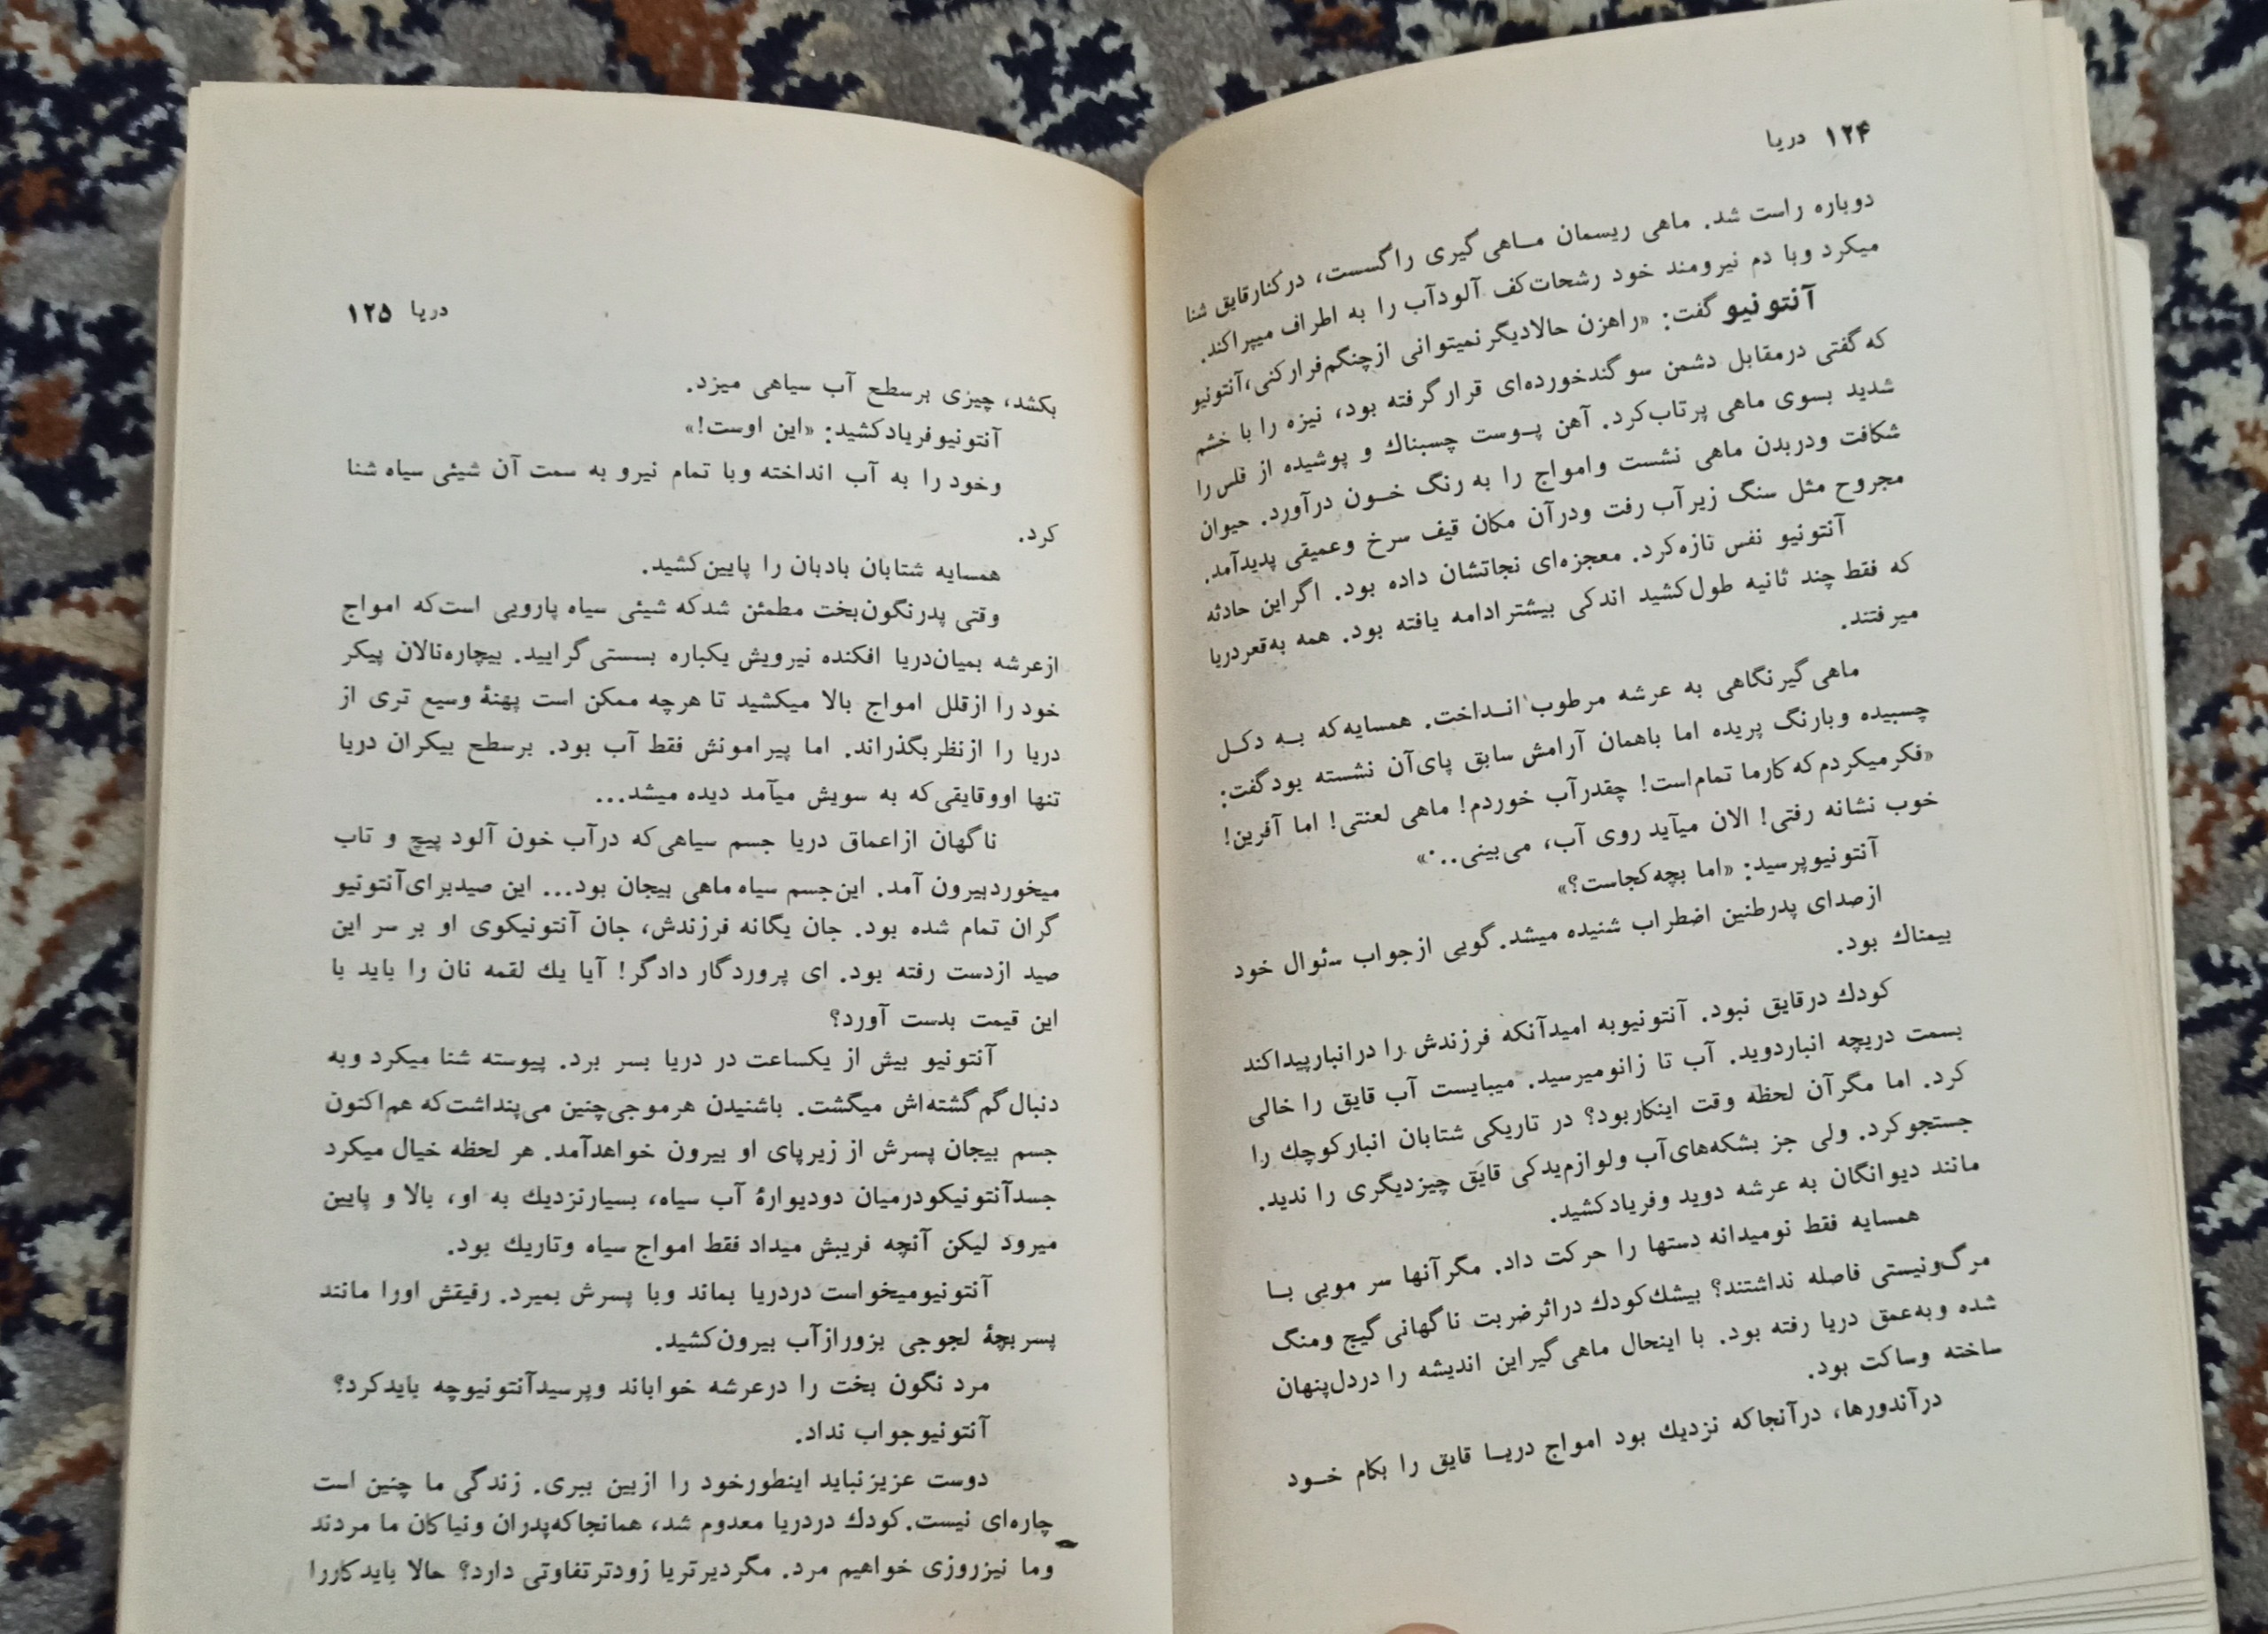 ۱۲۴ دریا
دوباره راست شد. ماهی ریسمان مـاهی‌گیری را گسست، در کنار قایق شنا
میکرد و با دم نیرومند خود رشحات کف آلود آب را به اطراف میپراکند.
آنتونیو گفت: «راهزن حالا دیگر نمیتوانی از چنگم فرار کنی، آنتونیو
که گفتی در مقابل دشمن سوگند خورده‌ای قرار گرفته بود، نیزه را با خشم
شدید بسوی ماهی پرتاب کرد. آهن پـوست چسبناك و پوشیده از فلس را
شکافت و در بدن ماهی نشست و امواج را به رنگ خـون در آورد. حیوان
مجروح مثل سنگ زیر آب رفت و در آن مکان قیف سرخ و عمیقی پدید آمد.
آنتونیو نفس تازه کرد. معجزه‌ای نجاتشان داده بود. اگر این حادثه
که فقط چند ثانیه طول کشید اندکی بیشتر ادامه یافته بود. همه به قعر دریا
میرفتند.
ماهی‌گیر نگاهی به عرشه مرطوب انـداخت. همسایه که بـه دکـل
چسبیده و با رنگ پریده اما با همان آرامش سابق پای آن نشسته بود گفت:
«فکر میکردم که کار ما تمام است! چقدر آب خوردم! ماهی لعنتی! اما آفرین!
خوب نشانه رفتی! الان میآید روی آب، می‌بینی...»
آنتونیو پرسید: «اما بچه کجاست؟»
از صدای پدر طنین اضطراب شنیده میشد. گویی از جواب سئوال خود
بیمناك بود.
کودك در قایق نبود. آنتونیو به امید آنکه فرزندش را در انبار پیدا کند
بسمت دریچه انبار دوید. آب تا زانو میرسید. میبایست آب قایق را خالی
کرد. اما مگر آن لحظه وقت اینکار بود؟ در تاریکی شتابان انبار کوچك را
جستجو کرد. ولی جز بشکه‌های آب و لوازم یدکی قایق چیز دیگری را ندید.
مانند دیوانگان به عرشه دوید و فریاد کشید.
همسایه فقط نومیدانه دستها را حرکت داد. مگر آنها سر مویی بـا
مرگ و نیستی فاصله نداشتند؟ بیشك کودك در اثر ضربت ناگهانی گیج و منگ
شده و به عمق دریا رفته بود. با اینحال ماهی‌گیر این اندیشه را در دل پنهان
ساخته و ساکت بود.
در آندورها، در آنجا که نزدیك بود امواج دریـا قایق را بکام خـود
دریا ۱۲۵
بکشد، چیزی بر سطح آب سیاهی میزد.
آنتونیو فریاد کشید: «این اوست!»
و خود را به آب انداخته و با تمام نیرو به سمت آن شیئی سیاه شنا
کرد.
همسایه شتابان بادبان را پایین کشید.
وقتی پدر نگون‌بخت مطمئن شد که شیئی سیاه پارویی است که امواج
از عرشه بمیان دریا افکنده نیرویش یکباره بسستی گرایید. بیچاره نالان پیکر
خود را از قلل امواج بالا میکشید تا هرچه ممکن است پهنهٔ وسیع تری از
دریا را از نظر بگذراند. اما پیرامونش فقط آب بود. بر سطح بیکران دریا
تنها او و قایقی که به سویش میآمد دیده میشد...
ناگهان از اعماق دریا جسم سیاهی که در آب خون آلود پیچ و تاب
میخورد بیرون آمد. این جسم سیاه ماهی بیجان بود... این صید برای آنتونیو
گران تمام شده بود. جان یگانه فرزندش، جان آنتونیکوی او بر سر این
صید از دست رفته بود. ای پروردگار دادگر! آیا یك لقمه نان را باید با
این قیمت بدست آورد؟
آنتونیو بیش از یکساعت در دریا بسر برد. پیوسته شنا میکرد و به
دنبال گم گشته‌اش میگشت. با شنیدن هر موجی چنین می‌پنداشت که هم اکنون
جسم بیجان پسرش از زیر پای او بیرون خواهد آمد. هر لحظه خیال میکرد
جسد آنتونیکو در میان دو دیوارهٔ آب سیاه، بسیار نزدیك به او، بالا و پایین
میرود لیکن آنچه فریبش میداد فقط امواج سیاه و تاریك بود.
آنتونیو میخواست در دریا بماند و با پسرش بمیرد. رفیقش او را مانند
پسر بچهٔ لجوجی بزور از آب بیرون کشید.
مرد نگون بخت را در عرشه خواباند و پرسید آنتونیو چه باید کرد؟
آنتونیو جواب نداد.
دوست عزیز نباید اینطور خود را از بین ببری. زندگی ما چنین است
چاره‌ای نیست. کودك در دریا معدوم شد، همانجا که پدران و نیاکان ما مردند
و ما نیز روزی خواهیم مرد. مگر دیرتر یا زودتر تفاوتی دارد؟ حالا باید کار را